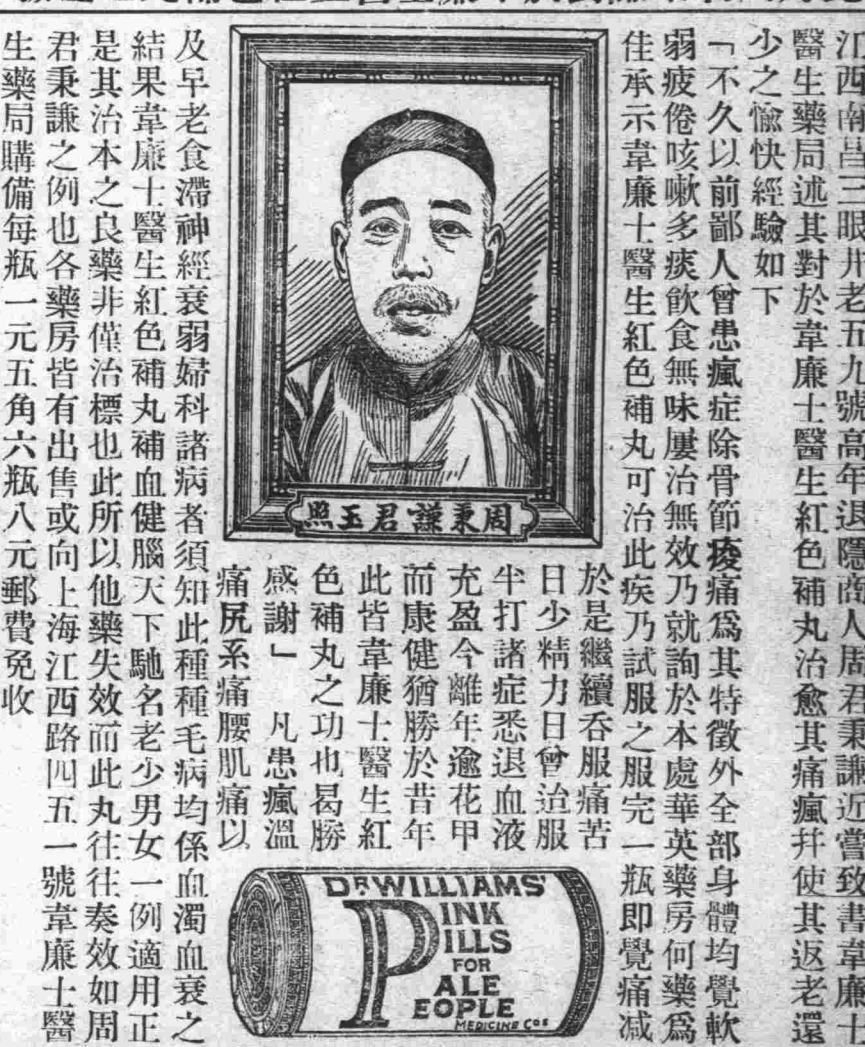 江西南昌三眼井老五九號高年退隱商人周君秉謙近嘗致書韋廉士
醫生藥局述其對於韋廉士醫生紅色補丸治愈其痛瘋幷使其返老還
少之愉快經驗如下
「不久以前鄙人曾患瘋症除骨節痠痛爲其特徵外全部身體均覺軟
弱疲倦咳嗽多痰飲食無味屢治無效乃就詢於本處華英藥房何藥爲
佳承示韋廉士醫生紅色補丸可治此疾乃試服之服完一瓶即覺痛減
於是繼續吞服痛苦
日少精力日曾迨服
半打諸症悉退血液
充盈今雖年逾花甲
而康健猶勝於昔年
此皆韋廉士醫生紅
色補丸之功也曷勝
感謝」 凡患瘋溫
痛尻系痛腰肌痛以
及早老食滯神經衰弱婦科諸病者須知此種種毛病均係血濁血衰之
結果韋廉士醫生紅色補丸補血健腦天下馳名老少男女一例適用正
是其治本之良藥非僅治標也此所以他藥失效而此丸往往奏效如周
君秉謙之例也各藥房皆有出售或向上海江西路四五一號韋廉士醫
生藥局購備每瓶一元五角六瓶八元郵費免收
周秉謙君玉照
DR WILLIAMS'
PINK
PILLS
FOR
PALE
PEOPLE
MEDICINE Cos